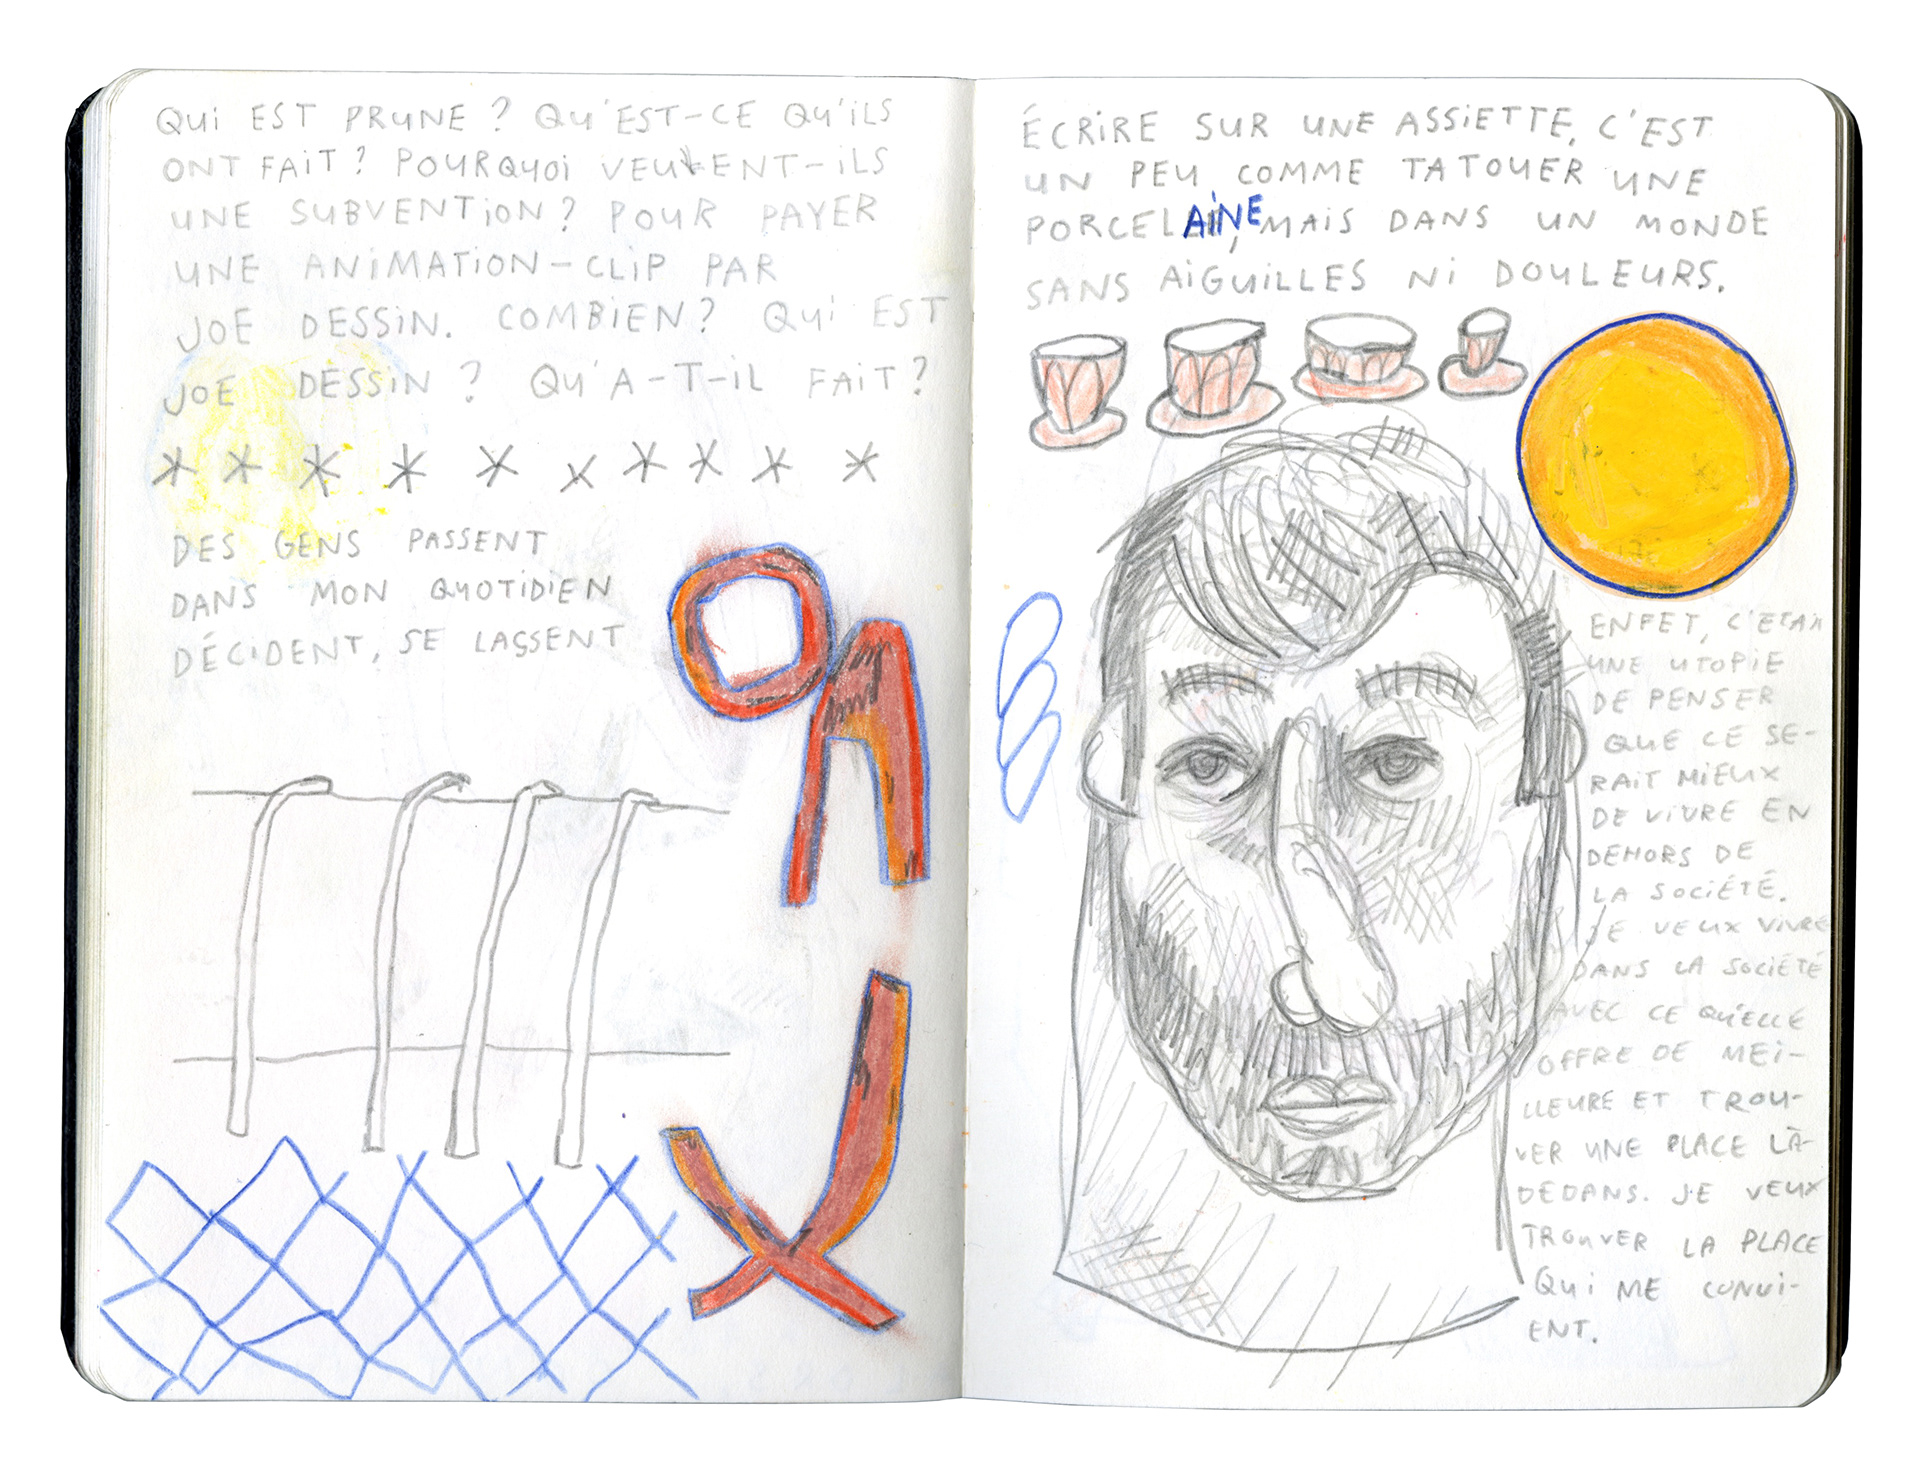 QUI EST PRUNE ? QU'EST-CE QU'ILS
ONT FAIT ? POURQUOI VEULENT-ILS
UNE SUBVENTION ? POUR PAYER
UNE ANIMATION-CLIP PAR
JOE DESSIN. COMBIEN ? QUI EST
JOE DESSIN ? QU'A-T-IL FAIT ?
* * * * * * * * * *
DES GENS PASSENT
DANS MON QUOTIDIEN
DÉCIDENT, SE LASSENT
ÉCRIRE SUR UNE ASSIETTE, C'EST
UN PEU COMME TATOUER UNE
PORCELAINE, MAIS DANS UN MONDE
SANS AIGUILLES NI DOULEURS.
ENFET, C'ETAIT
UNE UTOPIE
DE PENSER
QUE CE SE-
RAIT MIEUX
DE VIVRE EN
DEHORS DE
LA SOCIÉTÉ.
JE VEUX VIVRE
DANS LA SOCIÉTÉ
AVEC CE QU'ELLE
OFFRE DE MEI-
LLEURE ET TROU-
VER UNE PLACE LÀ-
DEDANS. JE VEUX
TROUVER LA PLACE
QUI ME CONVI-
ENT.